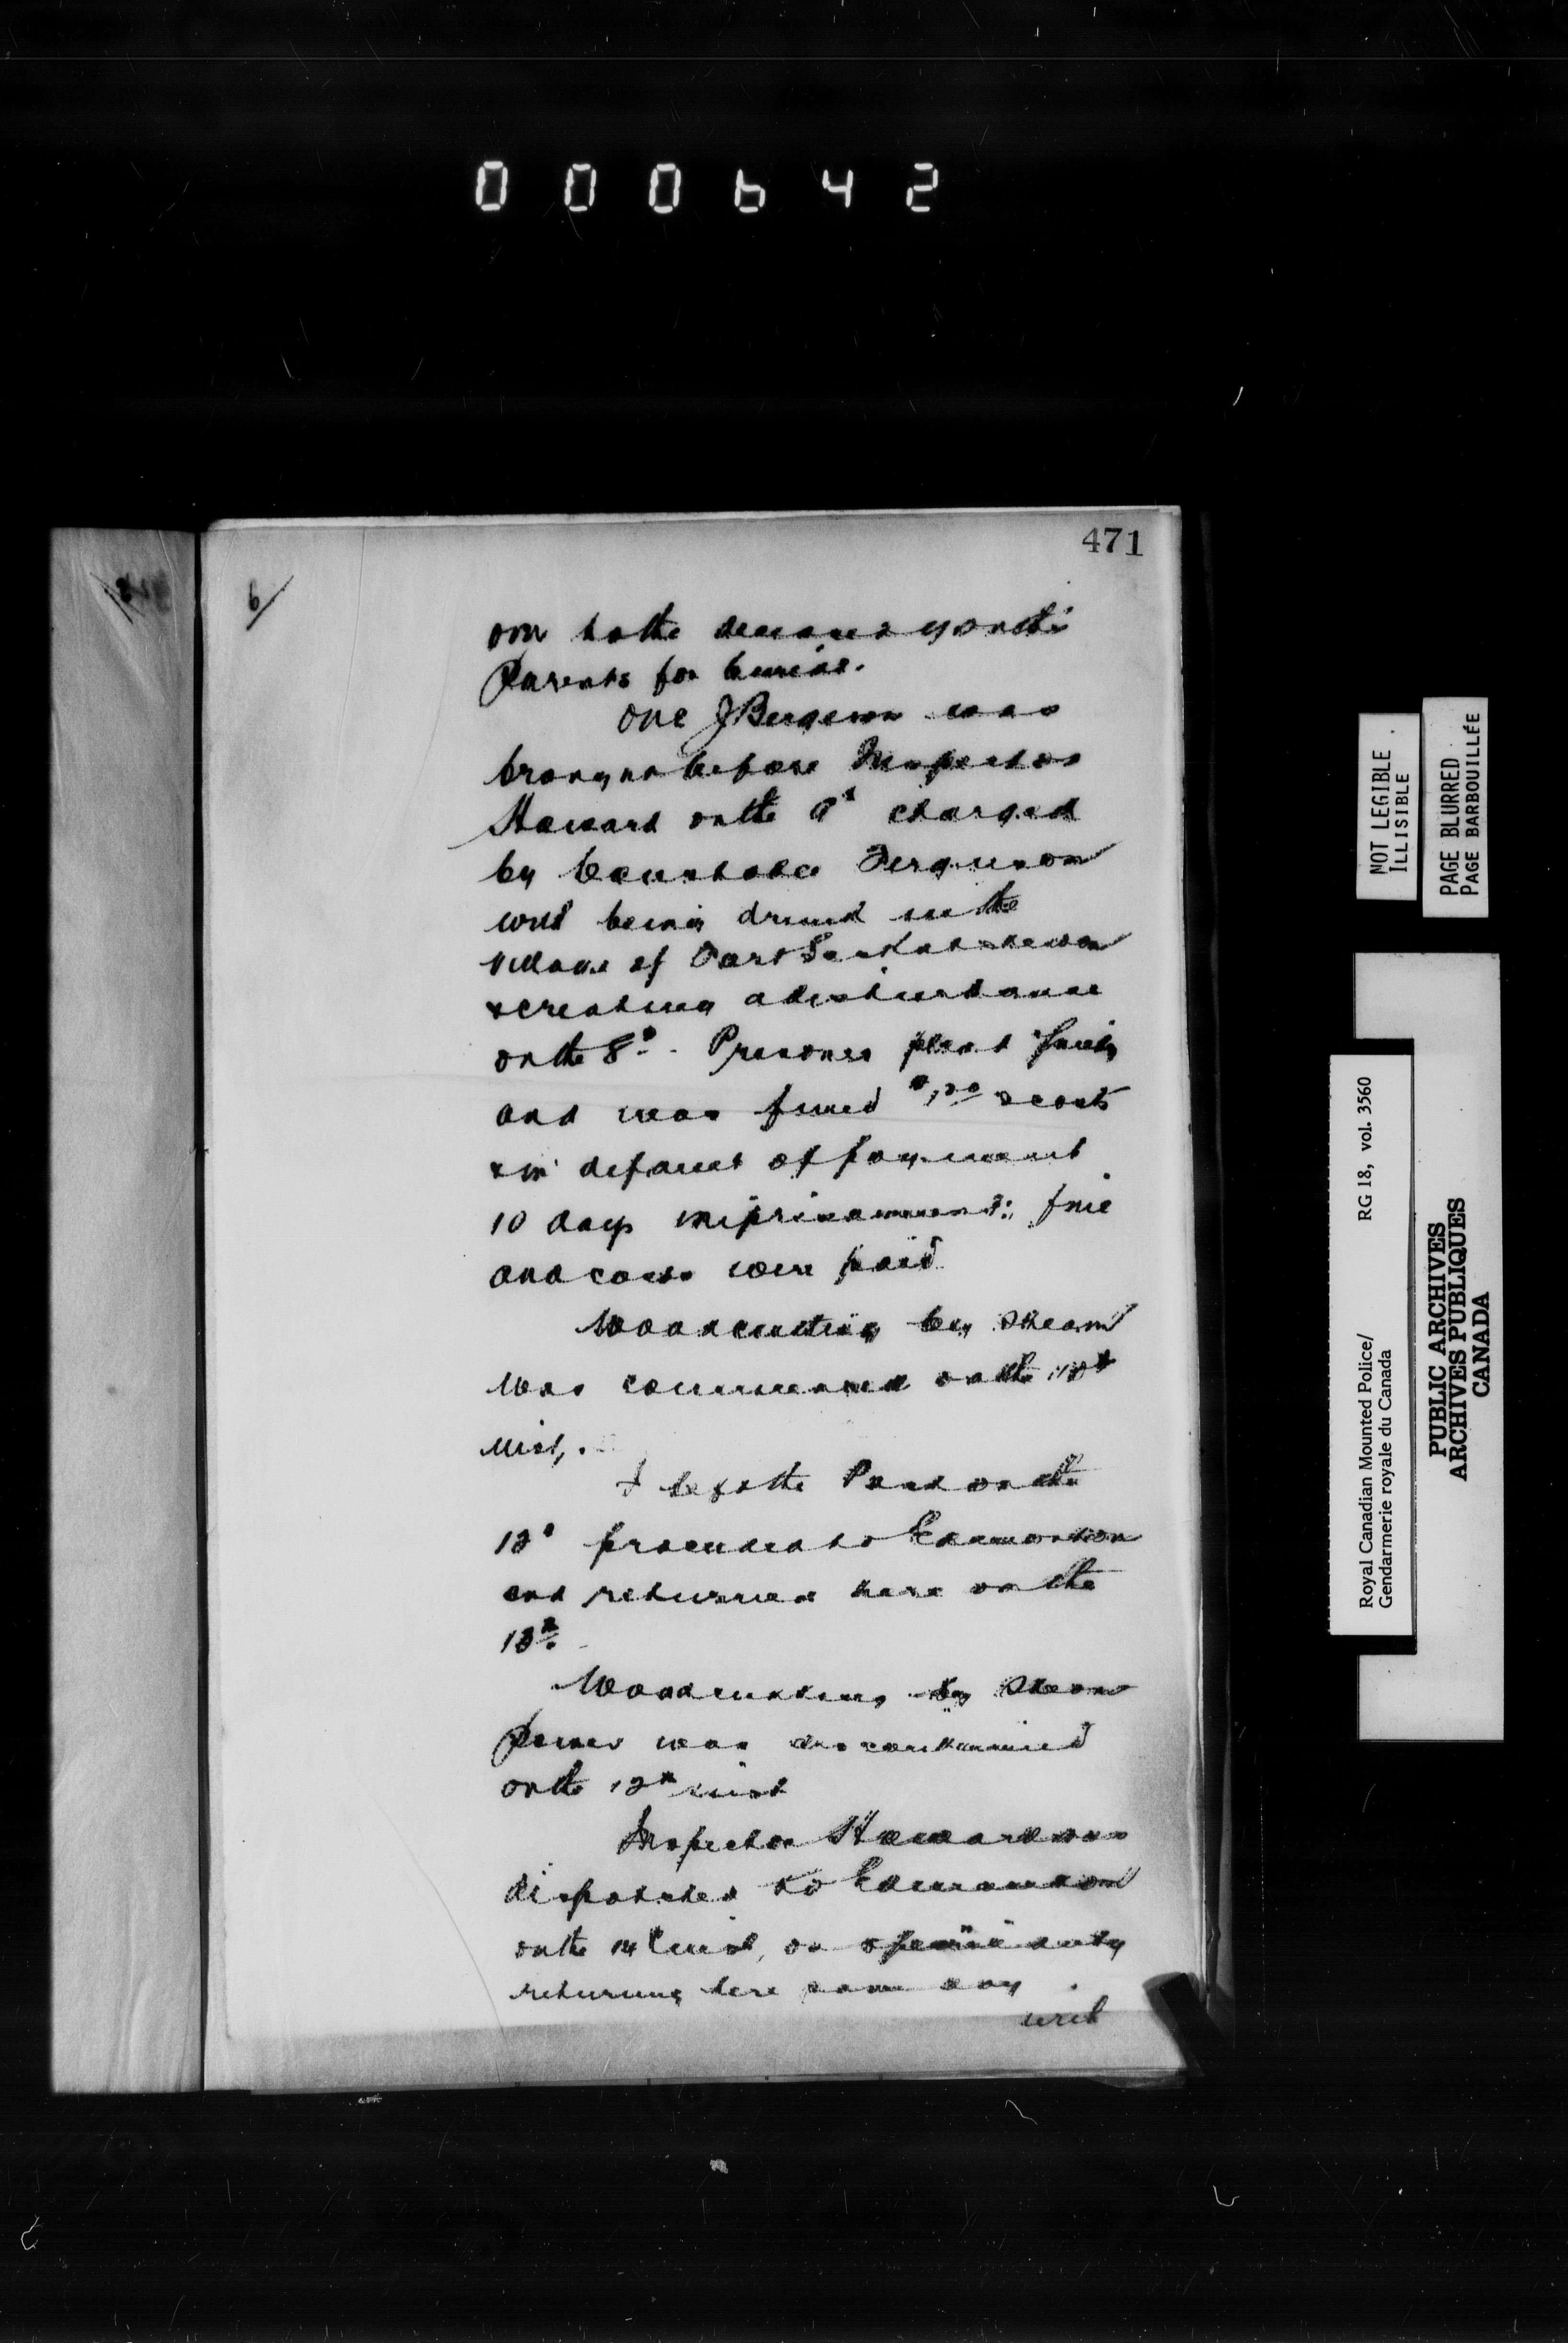 000642
471
6/
over to the deceased youth's
Parents for burial.
One J Bergeron was
brought before Inspector
Howard on the 9th charged
by Constable Ferguson
with being drunk in the
village of Fort Saskatchewan
& creating a disturbance
on the 8th. Prisoner plead guilty
and was fined & costs
& in default of payment
10 days imprisonment: fine
and costs were paid
Woodcutting by steam
was commenced on the
inst,.
I left the Post on the
12th proceeded to Edmonton
and returned here on the
13th.
Woodcutting by steam
power was discontinued
on the 12th inst
Inspector Howard was
dispatched to Edmonton
on the 14th inst, on special duty
returning here same day.
NOT LEGIBLE
ILLISIBLE
PAGE BLURRED
PAGE BARBOUILLÉE
Royal Canadian Mounted Police/ RG 18, vol. 3560
Gendarmerie royale du Canada
PUBLIC ARCHIVES
ARCHIVES PUBLIQUES
CANADA